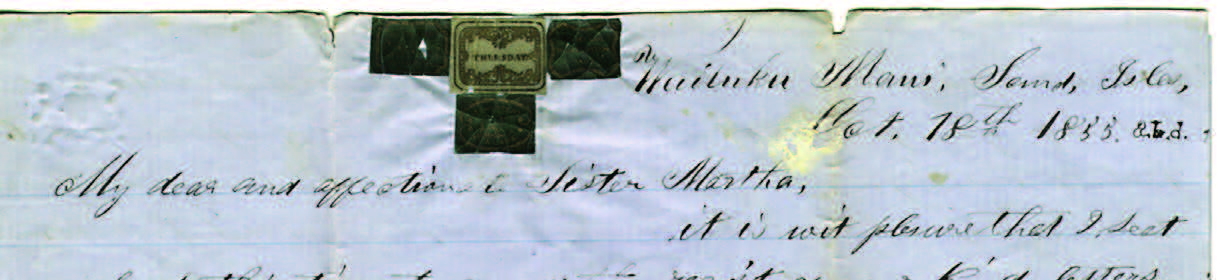 THURSDAY
Wailuku Maui, Sand, Isles,
Oct. 18th 1855. &.t.d.
My dear and affectionate Sister Martha,
it is wit plesure that I seat